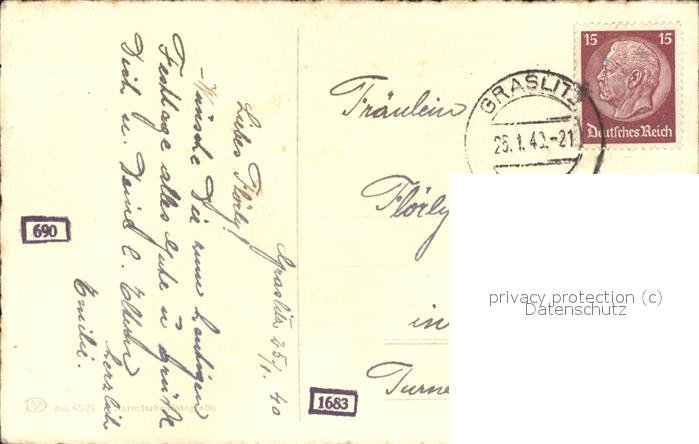 Graslitz 25/1. 40
Liebes Flörly!
-Wünsche Dir zum heutigen
Festtage alles Gute u. Grüße
Dich u. Deine l. Eltern
herzlich
Emilie.
690
1683
No. 4599 Naturfarbenfotografie
GRASLITZ
26.1.40.-21
15 15
Deutsches Reich
Fräulein
Flörly
in
Turne
privacy protection (c)
Datenschutz